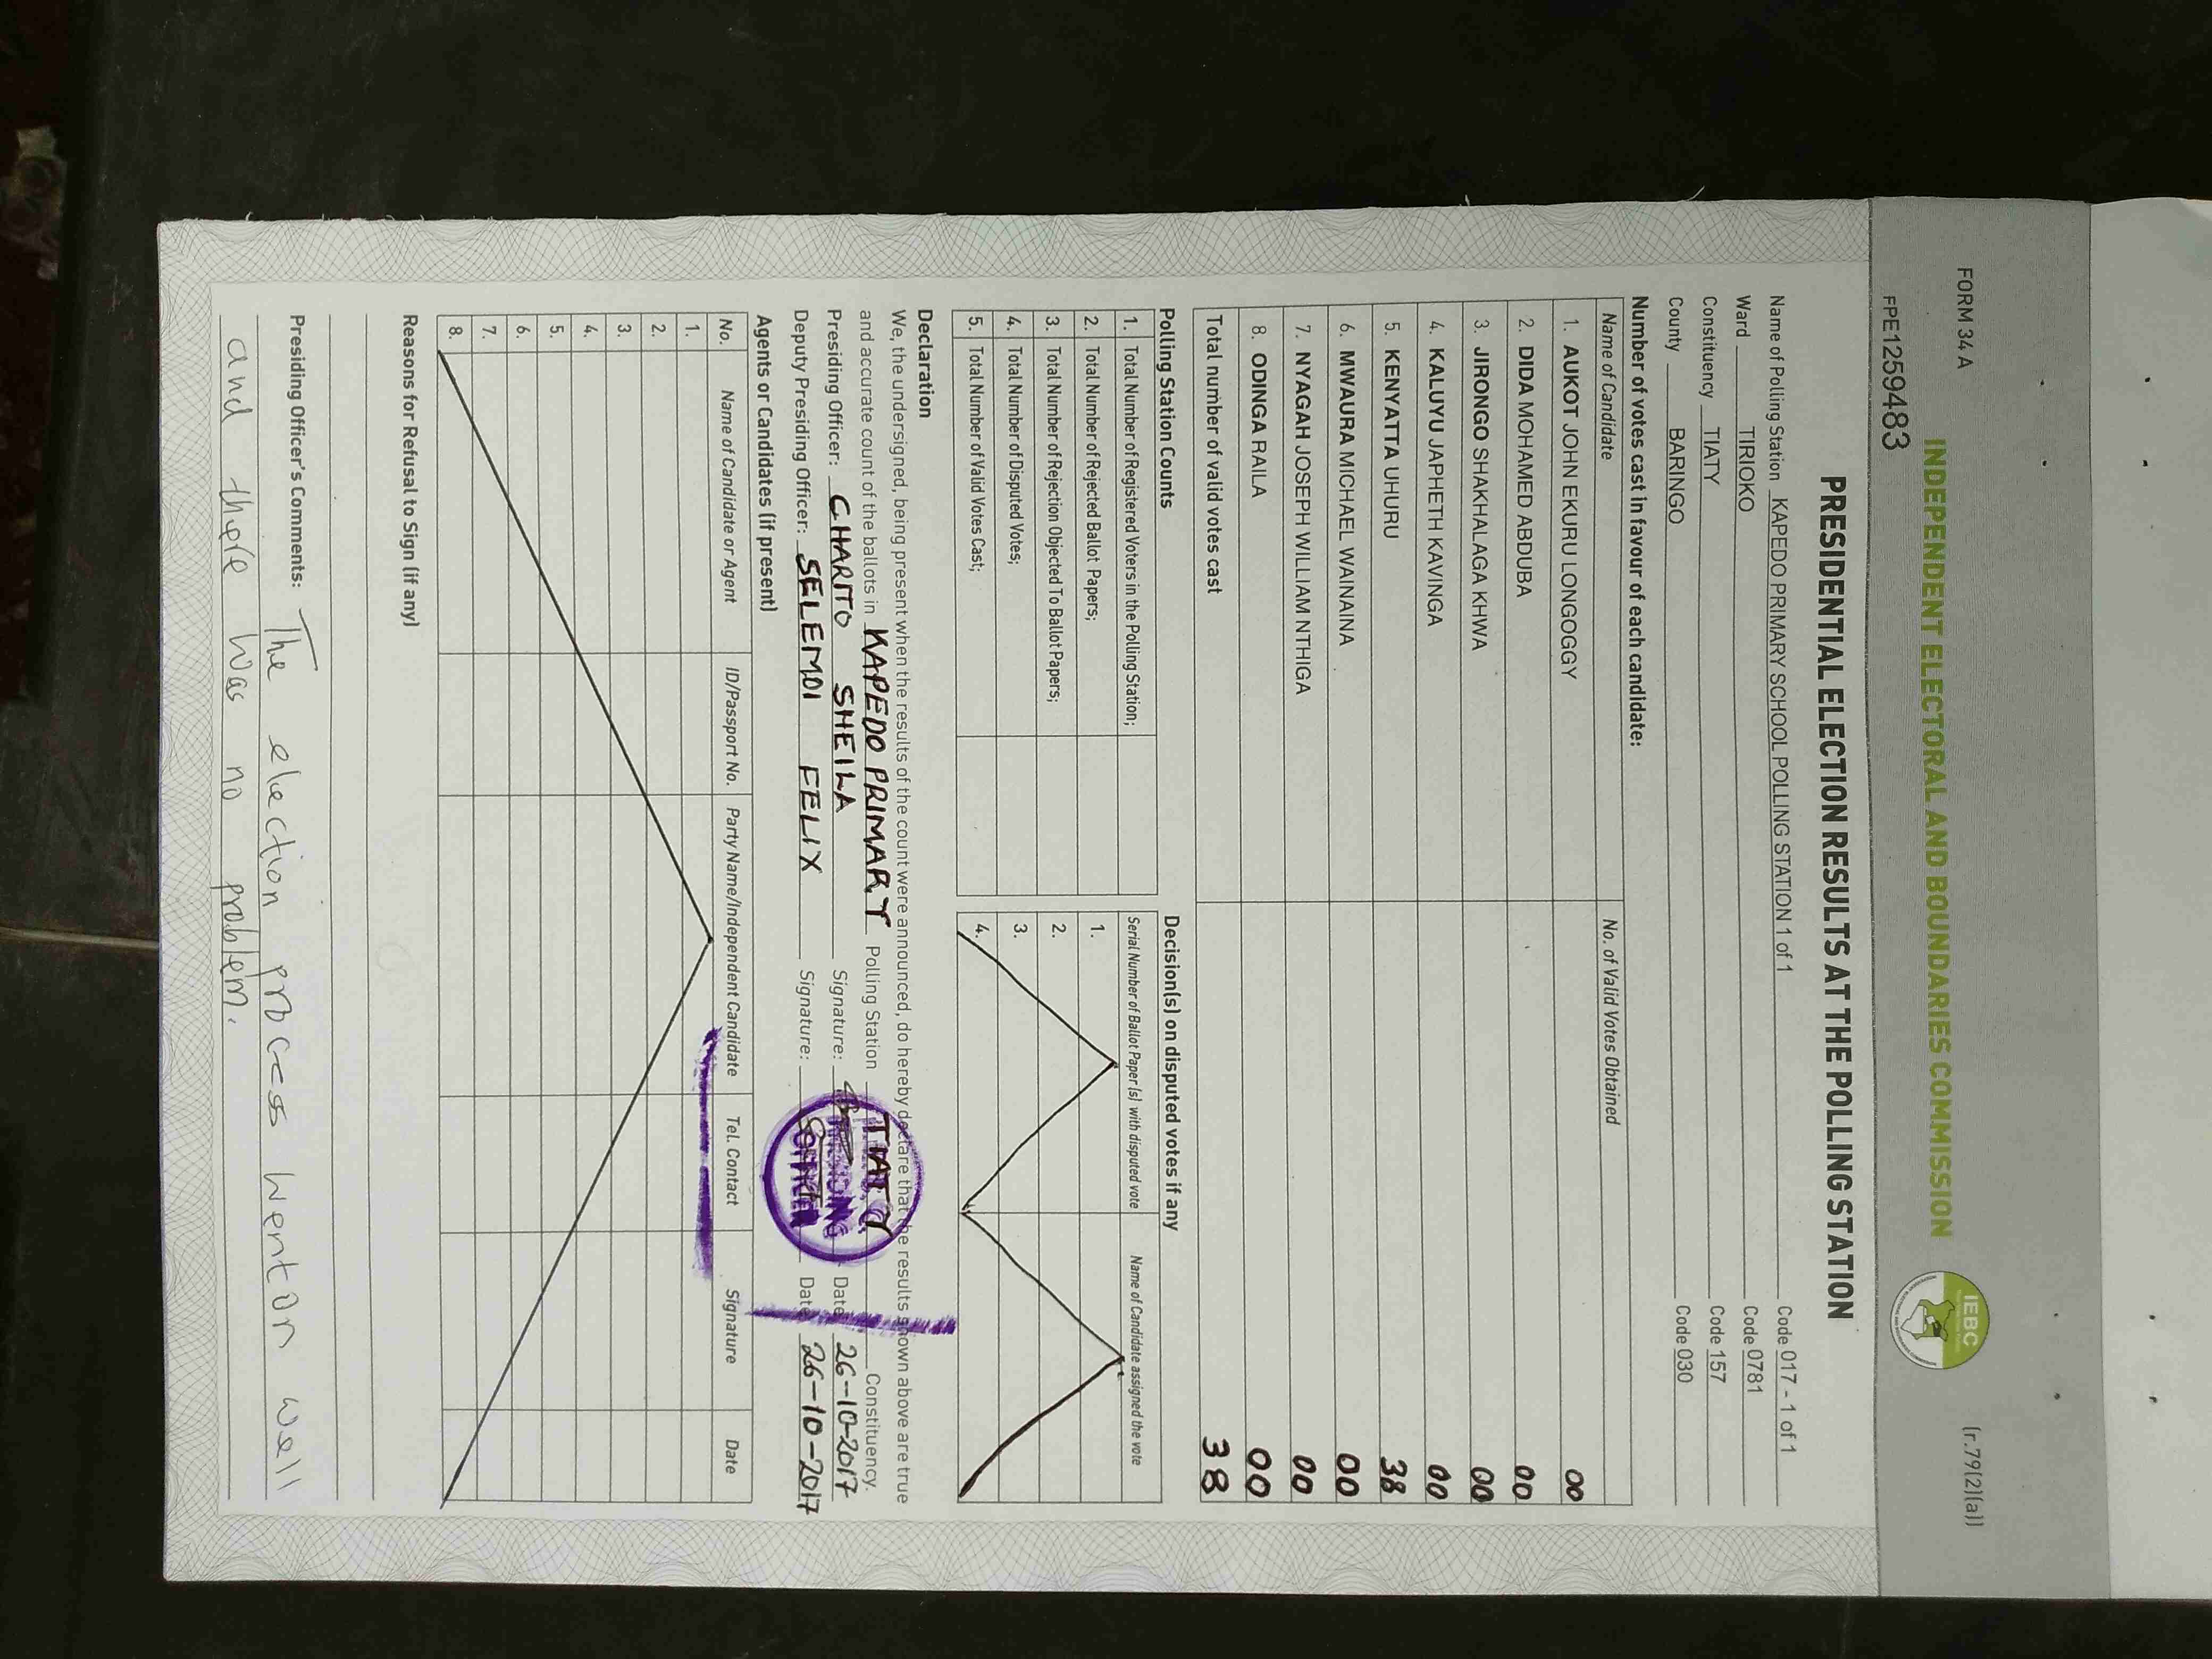 FORM 34 A
(r.79(2)(a))
INDEPENDENT ELECTORAL AND BOUNDARIES COMMISSION
IEBC
FPE1259483
PRESIDENTIAL ELECTION RESULTS AT THE POLLING STATION
Name of Polling Station KAPEDO PRIMARY SCHOOL POLLING STATION 1 of 1 Code 017 - 1 of 1
Ward TIRIOKO Code 0781
Constituency TIATY Code 157
County BARINGO Code 030
Number of votes cast in favour of each candidate:
Name of Candidate No. of Valid Votes Obtained
1. AUKOT JOHN EKURU LONGOGGY 00
2. DIDA MOHAMED ABDUBA 00
3. JIRONGO SHAKHALAGA KHWA 00
4. KALUYU JAPHETH KAVINGA 00
5. KENYATTA UHURU 38
6. MWAURA MICHAEL WAINAINA 00
7. NYAGAH JOSEPH WILLIAM NTHIGA 00
8. ODINGA RAILA 00
Total number of valid votes cast 38
Polling Station Counts
1. Total Number of Registered Voters in the Polling Station;
2. Total Number of Rejected Ballot Papers;
3. Total Number of Rejection Objected To Ballot Papers;
4. Total Number of Disputed Votes;
5. Total Number of Valid Votes Cast;
Decision(s) on disputed votes if any
Serial Number of Ballot Paper (s) with disputed vote Name of Candidate assigned the vote
1.
2.
3.
4.
Declaration
We, the undersigned, being present when the results of the count were announced, do hereby declare that the results shown above are true
and accurate count of the ballots in KAPEDO PRIMARY Polling Station TIATY Constituency.
Presiding Officer: CHARITO SHEILA Signature: Date 26-10-2017
Deputy Presiding Officer: SELEMOI FELIX Signature: Date 26-10-2017
PRESIDING
OFFICER
Agents or Candidates (if present)
No. Name of Candidate or Agent ID/Passport No. Party Name/Independent Candidate Tel. Contact Signature Date
1.
2.
3.
4.
5.
6.
7.
8.
Reasons for Refusal to Sign (if any)
Presiding Officer's Comments: The election process wenton well
and there was no problem.